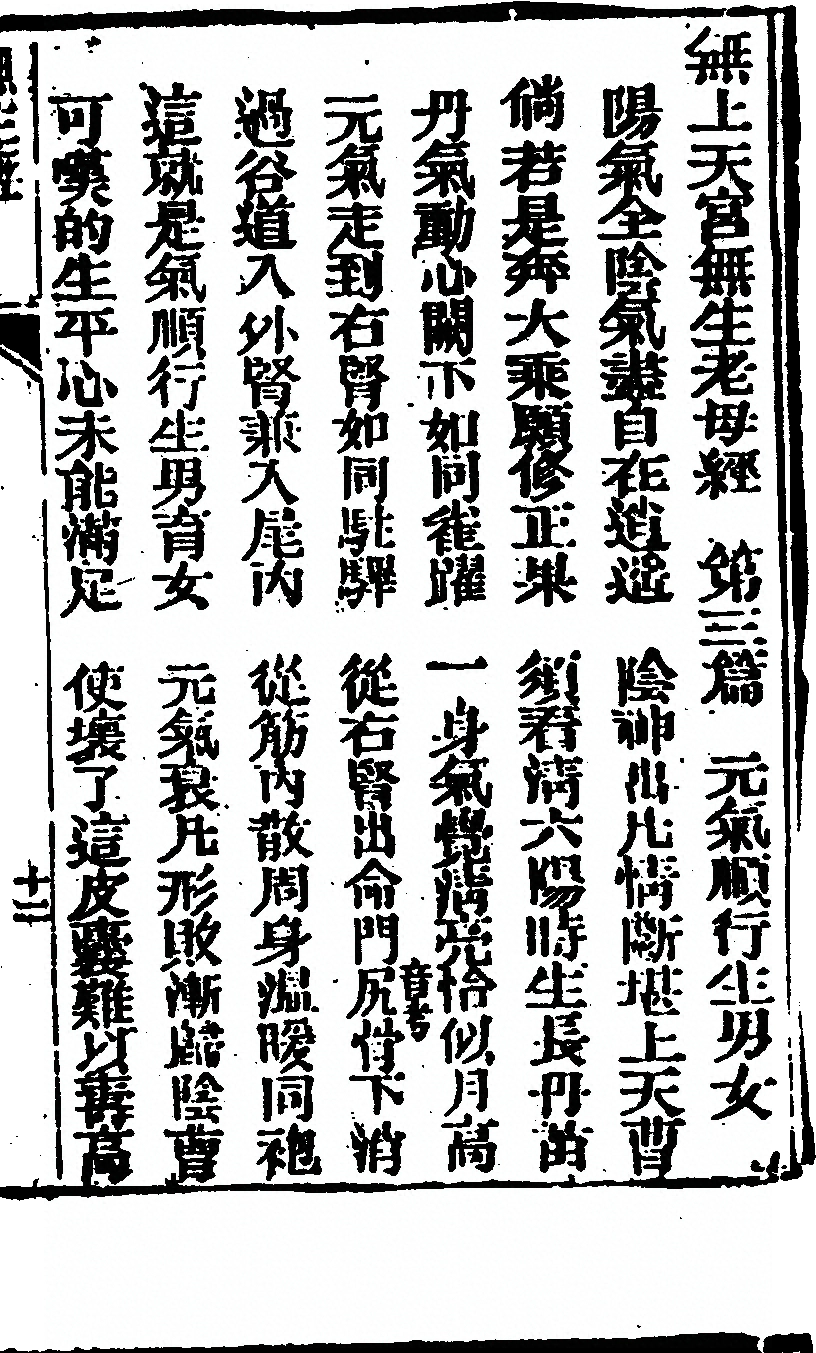 無上天宮無生老母經　第三篇　元氣順行生男女
陽氣全陰氣盡自在逍遙　陰神出凡情斷堪上天曹
倘若是奔大乘願修正果　須看清六陽時生長丹苗
丹氣動心關下如同雀躍　一身氣覺精亮恰似月高
元氣走到右腎如同駐驛　從右腎出命門尻骨下消
音考
過谷道入外腎兼入尾內　從筋內散周身溫暖同袍
這就是氣順行生男育女　元氣衰凡形敗漸歸陰曹
可嘆的生平心未能滿足　使壞了這皮囊難以壽高
十二